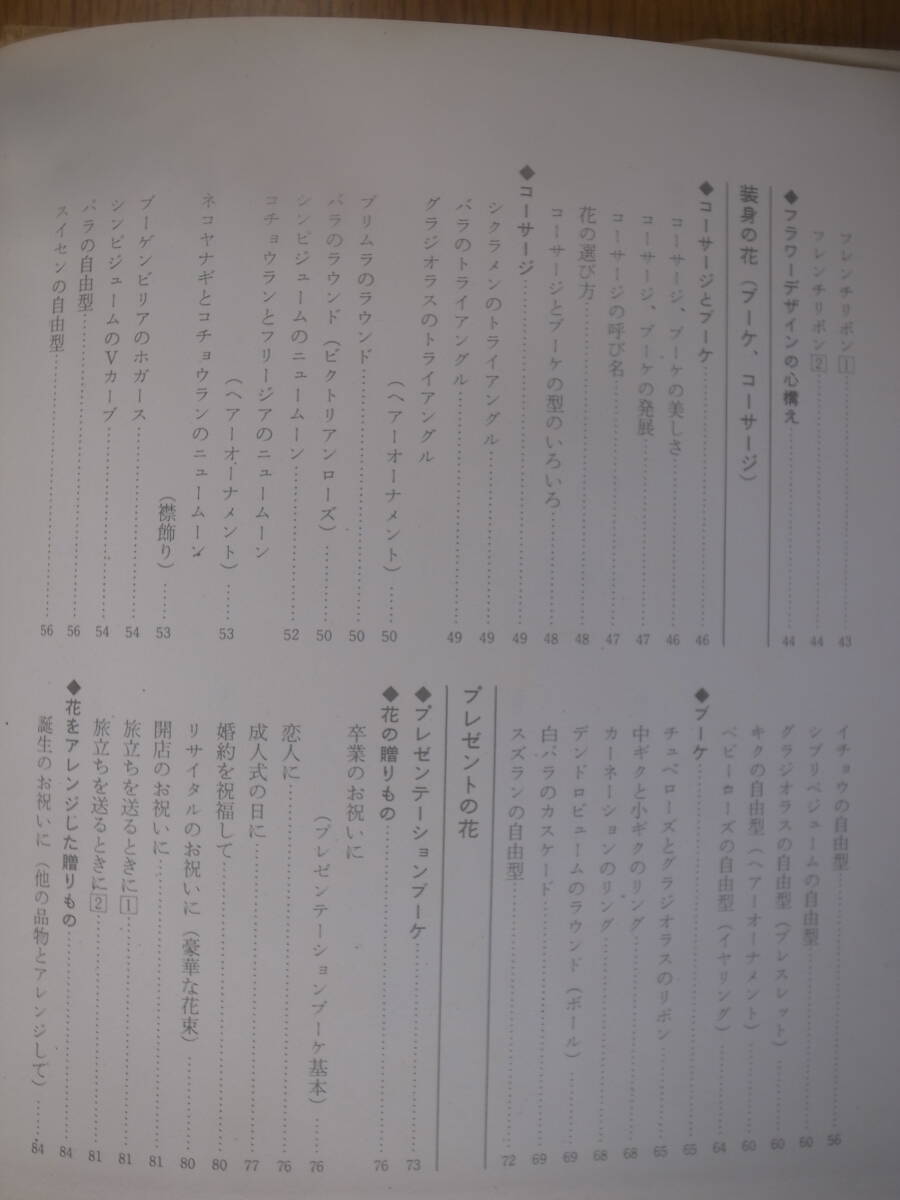 フレンチリボン1……43
フレンチリボン2……44
◆フラワーデザインの心構え……44
装身の花(ブーケ、コーサージ)
◆コーサージとブーケ……46
コーサージ、ブーケの美しさ……46
コーサージ、ブーケの発展……47
コーサージの呼び名……47
花の選び方……48
コーサージとブーケの型のいろいろ……48
◆コーサージ……49
シクラメンのトライアングル……49
バラのトライアングル……49
グラジオラスのトライアングル
(ヘアーオーナメント)……50
プリムラのラウンド……50
バラのラウンド(ビクトリアンローズ)……50
シンビジュームのニュームーン……52
コチョウランとフリージアのニュームーン
(ヘアーオーナメント)……53
ネコヤナギとコチョウランのニュームーン
(襟飾り)……53
ブーゲンビリアのホガース……54
シンビジュームのVカーブ……54
バラの自由型……56
スイセンの自由型……56
イチョウの自由型……56
シプリペジュームの自由型……60
グラジオラスの自由型(ブレスレット)……60
キクの自由型(ヘアーオーナメント)……60
ベビーローズの自由型(イヤリング)……64
◆ブーケ……65
チュベローズとグラジオラスのリボン……65
中ギクと小ギクのリング……68
カーネーションのリング……68
デンドロビュームのラウンド(ボール)……69
白バラのカスケード……69
スズランの自由型……72
プレゼントの花
◆プレゼンテーションブーケ……73
◆花の贈りもの……76
卒業のお祝いに
(プレゼンテーションブーケ基本)……76
恋人に……76
成人式の日に……77
婚約を祝福して……80
リサイタルのお祝いに(豪華な花束)……80
開店のお祝いに……81
旅立ちを送るときに1……81
旅立ちを送るときに2……81
◆花をアレンジした贈りもの……84
誕生のお祝いに(他の品物とアレンジして)……84